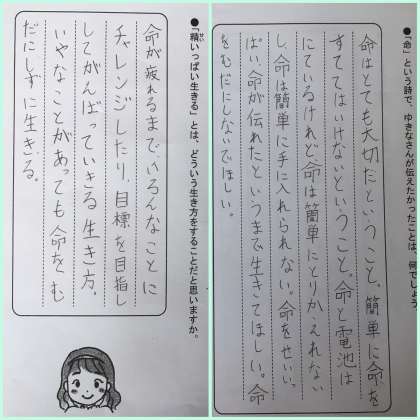 ●「命」という詩で、ゆきなさんが伝えたかったことは、何でしょう
命はとても大切だということ。簡単に命を
すててはいけないということ。命と電池は
にているけれど命は簡単にとりかえれない
し、命は簡単に手に入れられない。命をせいい
ぱい、命が伝れたというまで生きてほしい。命
をむだにしないでほしい。
●「精いっぱい生きる」とは、どういう生き方をすることだと思いますか。
せい
命が疲れるまで、いろんなことに
チャレンジしたり、目標を目指し
してがんばっていきる生き方。
いやなことがあっても命をむ
だにしずに生きる。